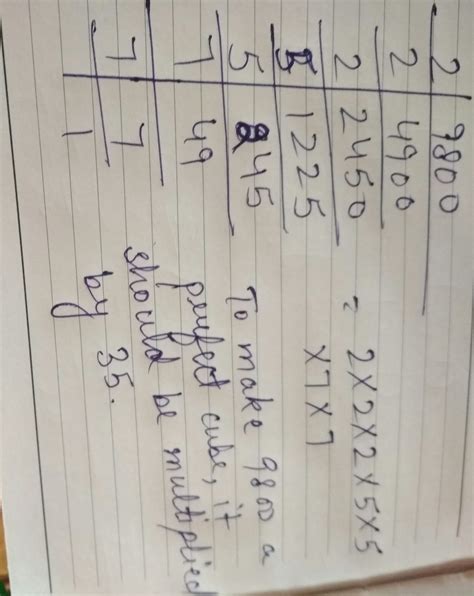 2 | 9800
2 | 4900
2 | 2450
5 | 1225
5 | 245
7 | 49
7 | 7
1
= 2×2×2×5×5
×7×7
To make 9800 a
perfect cube, it
should be multiplied
by 35.